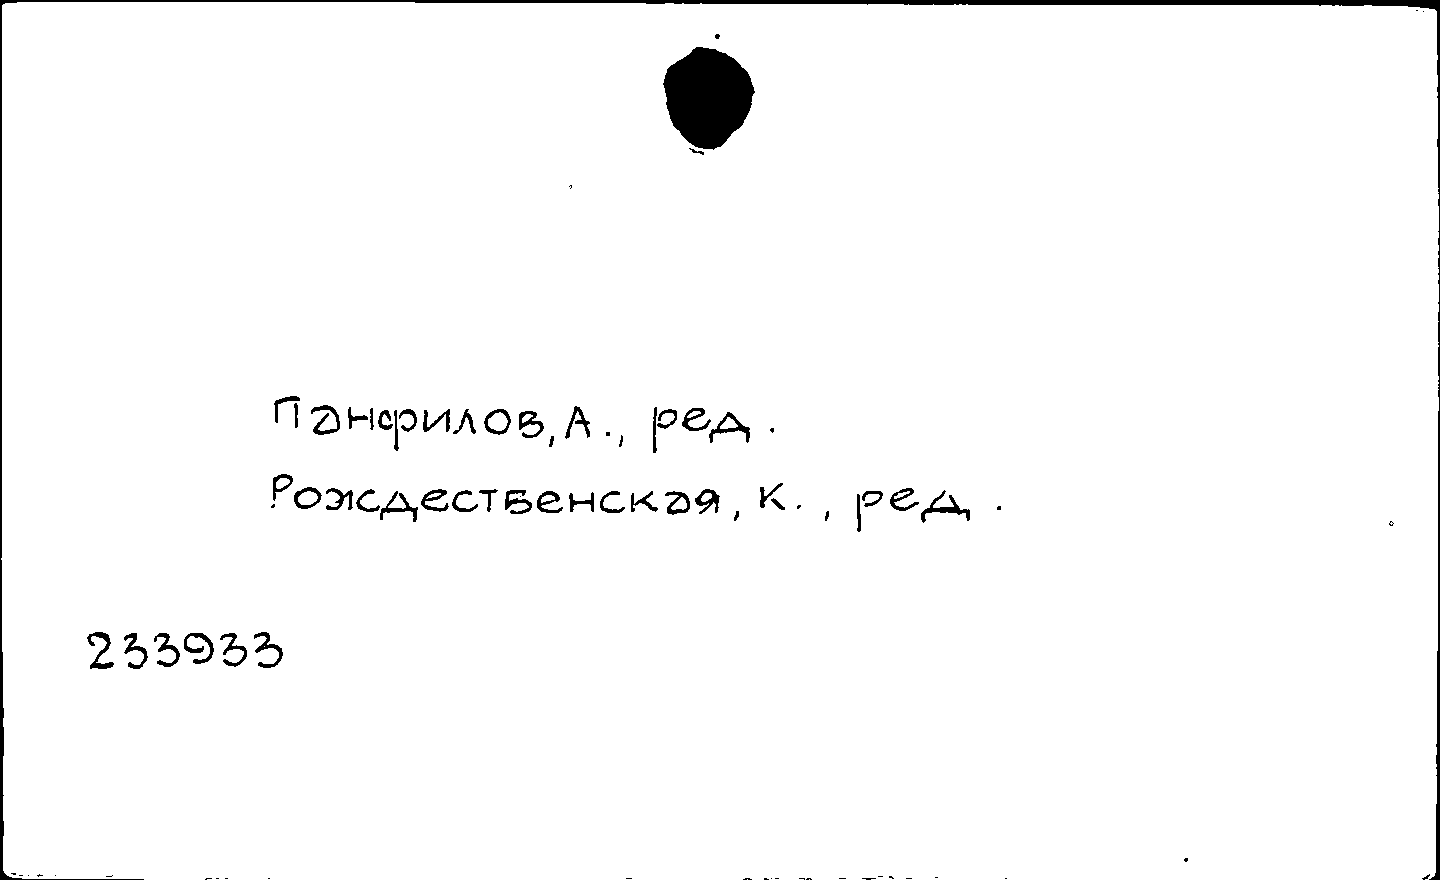 Панфилов, А., ред.
Рождественская, К., ред.
233933